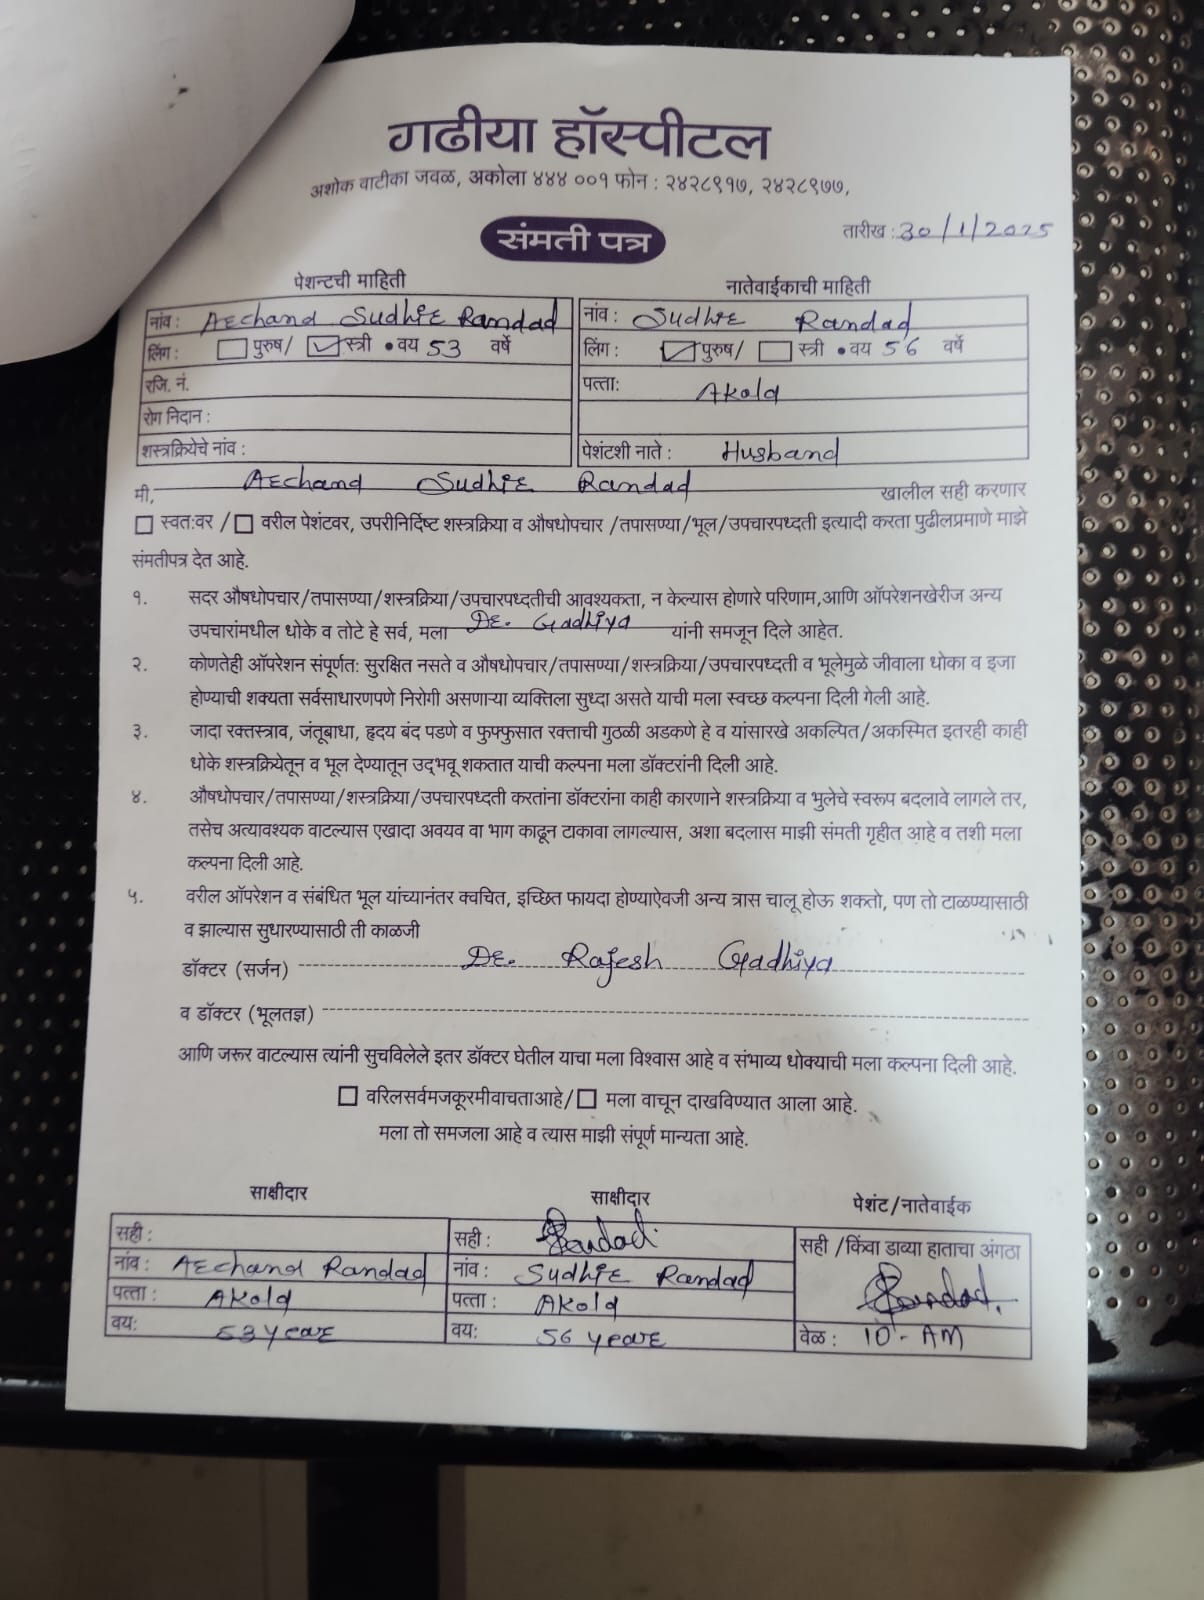 गढीया हॉस्पीटल
अशोक वाटीका जवळ, अकोला ४४४ ००१ फोन : २४२८९१७, २४२८९७७,
संमती पत्र
तारीख : 30/1/2025
पेशन्टची माहिती
नांव : Archand Sudhir Randad
लिंग : पुरुष/ स्त्री • वय 53 वर्षे
रजि. नं.
रोग निदान :
शस्त्रक्रियेचे नांव :
नातेवाईकाची माहिती
नांव : Sudhir Randad
लिंग : पुरुष/ स्त्री • वय 56 वर्षे
पत्ता: Akola
पेशंटशी नाते : Husband
मी, Archand Sudhir Randad खालील सही करणार
स्वत:वर / वरील पेशंटवर, उपरीनिर्दिष्ट शस्त्रक्रिया व औषधोपचार /तपासण्या/भूल/उपचारपध्दती इत्यादी करता पुढीलप्रमाणे माझे
संमतीपत्र देत आहे.
१. सदर औषधोपचार/तपासण्या/शस्त्रक्रिया/उपचारपध्दतीची आवश्यकता, न केल्यास होणारे परिणाम,आणि ऑपरेशनखेरीज अन्य
उपचारांमधील धोके व तोटे हे सर्व, मला Dr. Gadhiya यांनी समजून दिले आहेत.
२. कोणतेही ऑपरेशन संपूर्णत: सुरक्षित नसते व औषधोपचार/तपासण्या/शस्त्रक्रिया/उपचारपध्दती व भूलेमुळे जीवाला धोका व इजा
होण्याची शक्यता सर्वसाधारणपणे निरोगी असणाऱ्या व्यक्तिला सुध्दा असते याची मला स्वच्छ कल्पना दिली गेली आहे.
३. जादा रक्तस्त्राव, जंतूबाधा, हृदय बंद पडणे व फुफ्फुसात रक्ताची गुठळी अडकणे हे व यांसारखे अकल्पित/अकस्मित इतरही काही
धोके शस्त्रक्रियेतून व भूल देण्यातून उद्‌भवू शकतात याची कल्पना मला डॉक्टरांनी दिली आहे.
४. औषधोपचार/तपासण्या/शस्त्रक्रिया/उपचारपध्दती करतांना डॉक्टरांना काही कारणाने शस्त्रक्रिया व भुलेचे स्वरूप बदलावे लागले तर,
तसेच अत्यावश्यक वाटल्यास एखादा अवयव वा भाग काढून टाकावा लागल्यास, अशा बदलास माझी संमती गृहीत आहे व तशी मला
कल्पना दिली आहे.
५. वरील ऑपरेशन व संबंधित भूल यांच्यानंतर क्वचित, इच्छित फायदा होण्याऐवजी अन्य त्रास चालू होऊ शकतो, पण तो टाळण्यासाठी
व झाल्यास सुधारण्यासाठी ती काळजी
डॉक्टर (सर्जन) Dr. Rajesh Gadhiya
व डॉक्टर (भूलतज्ञ)
आणि जरूर वाटल्यास त्यांनी सुचविलेले इतर डॉक्टर घेतील याचा मला विश्वास आहे व संभाव्य धोक्याची मला कल्पना दिली आहे.
वरिलसर्वमजकूरमीवाचताआहे/ मला वाचून दाखविण्यात आला आहे.
मला तो समजला आहे व त्यास माझी संपूर्ण मान्यता आहे.
साक्षीदार
सही :
नांव : Archand Randad
पत्ता : Akola
वय: 53 year
साक्षीदार
सही : Randad
नांव : Sudhir Randad
पत्ता : Akola
वय: 56 year
पेशंट/नातेवाईक
सही /किंवा डाव्या हाताचा अंगठा
Randad.
वेळ : 10 - AM